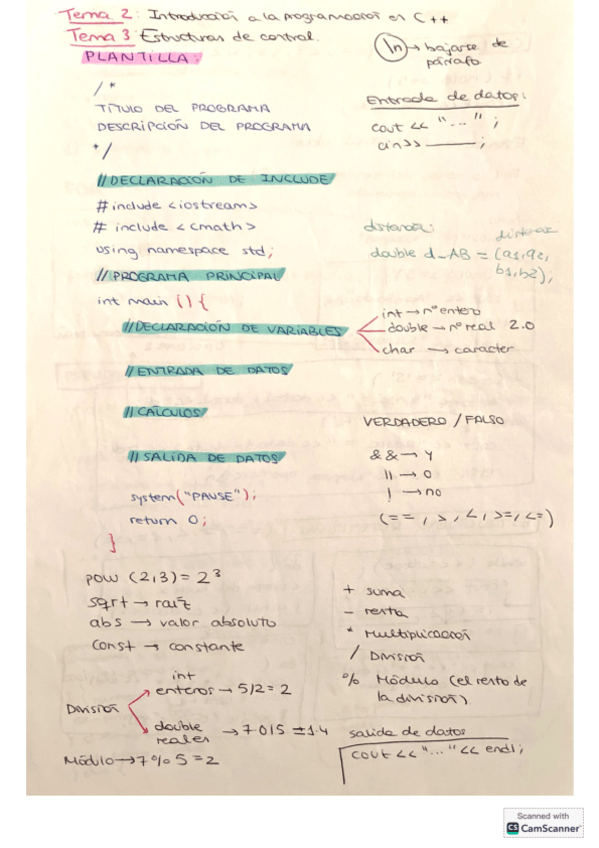 Tema 2: Introducción a la programación en C++
Tema 3 Estructuras de control.
PLANTILLA:
\n → bajarte de párrafo
/*
TÍTULO DEL PROGRAMA
DESCRIPCIÓN DEL PROGRAMA
*/
Entrada de datos:
cout << "..." ;
cin>> ;
//DECLARACIÓN DE INCLUDE
#include <iostream>
# include <cmath>
using namespace std;
distancia:
double d_AB = (a1,a2,
b1,b2);
//PROGRAMA PRINCIPAL
int main () {
//DECLARACIÓN DE VARIABLES
int → nº entero
double → nº real 2.0
char → caracter
//ENTRADA DE DATOS
//CÁLCULOS
//SALIDA DE DATOS
VERDADERO / FALSO
&& → y
|| → o
! → no
(==, >, <, >=, <=)
system("PAUSE");
return 0;
}
pow (2,3) = 2³
sqrt → raíz
abs → valor absoluto
const → constante
+ suma
- resta
* Multiplicación
/ División
% Módulo (el resto de
la división).
División
int
enteros → 5/2 = 2
double
reales → 7.0/5 = 1.4
Módulo → 7 % 5 = 2
salida de datos
cout << "..." << endl;
Scanned with
CS CamScanner